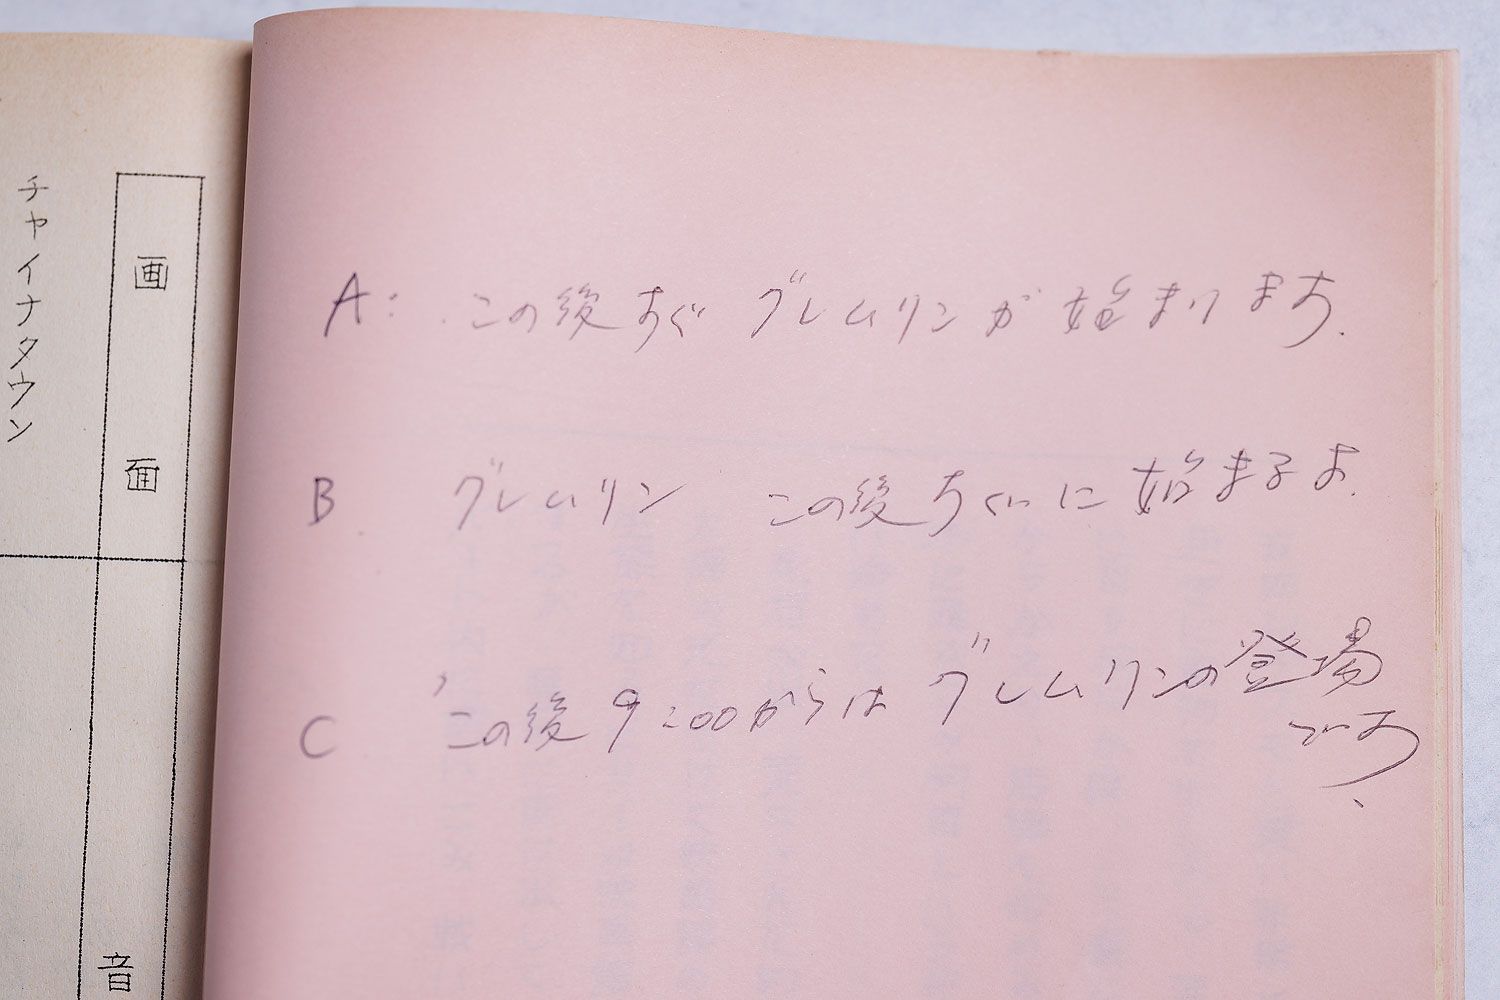 チャイナタウン
画面
音
A: この後すぐ グレムリンが始まります.
B グレムリン この後すぐに始まるよ.
C この後9:00からは グレムリンの登場
です.